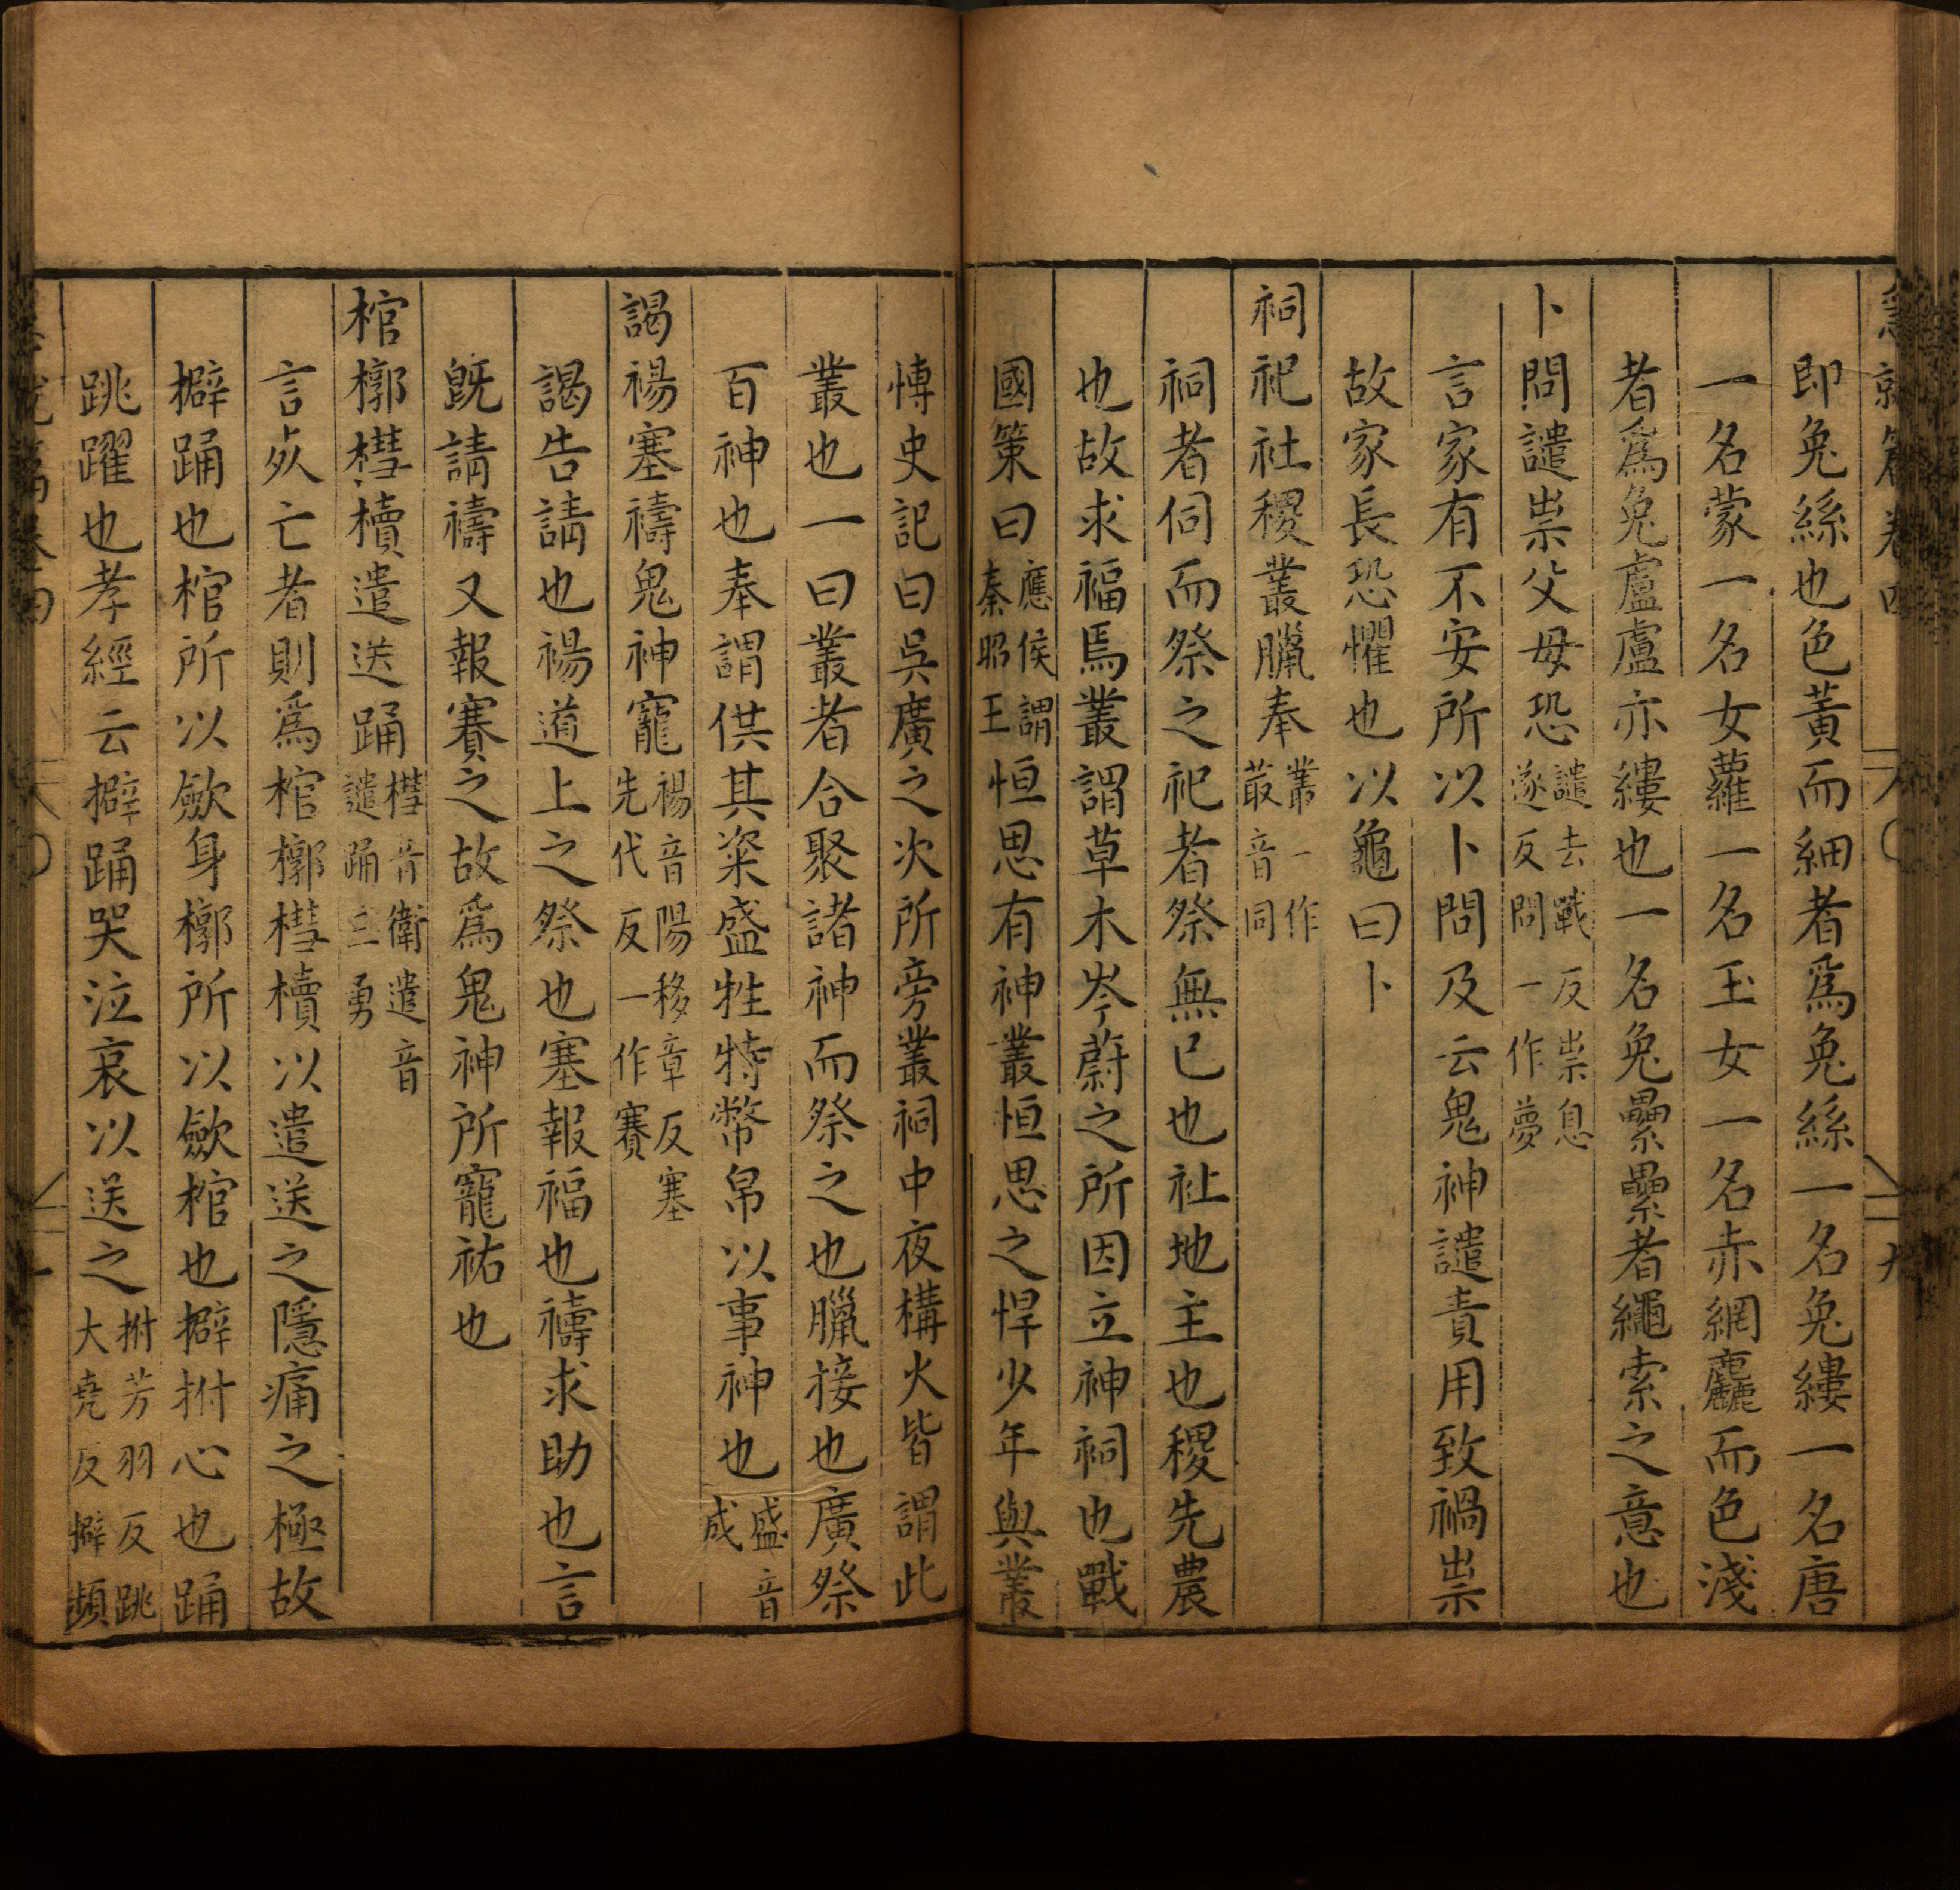 急就篇卷四
即兔絲也色黃而細者爲兔絲一名兔縷一名唐
一名蒙一名女蘿一名玉女一名赤網麤而色淺
者爲兔盧盧亦縷也一名兔纍纍者繩索之意也
卜問譴祟父母恐譴去戰反祟息遂反問一作夢
言家有不安所以卜問及云鬼神譴責用致禍祟
故家長恐懼也以龜曰卜
祠祀社稷叢臘奉叢一作菆音同
祠者伺而祭之祀者祭無已也社地主也稷先農
也故求福焉叢謂草木岑蔚之所因立神祠也戰
國策曰應侯謂秦昭王恒思有神叢恒思之悍少年與叢
博史記曰吳廣之次所旁叢祠中夜構火皆謂此
叢也一曰叢者合聚諸神而祭之也臘接也廣祭
百神也奉謂供其粢盛牲特幣帛以事神也盛音成
謁禓塞禱鬼神寵禓音陽移章反塞先代反一作賽
謁告請也禓道上之祭也塞報福也禱求助也言
旣請禱又報賽之故爲鬼神所寵祐也
棺槨槥櫝遣送踊槥音衛遣音譴踊音勇
言死亡者則爲棺槨槥櫝以遣送之隱痛之極故
擗踊也棺所以歛身槨所以歛棺也擗拊心也踊
跳躍也孝經云擗踊哭泣哀以送之拊芳羽反跳大堯反擗頻